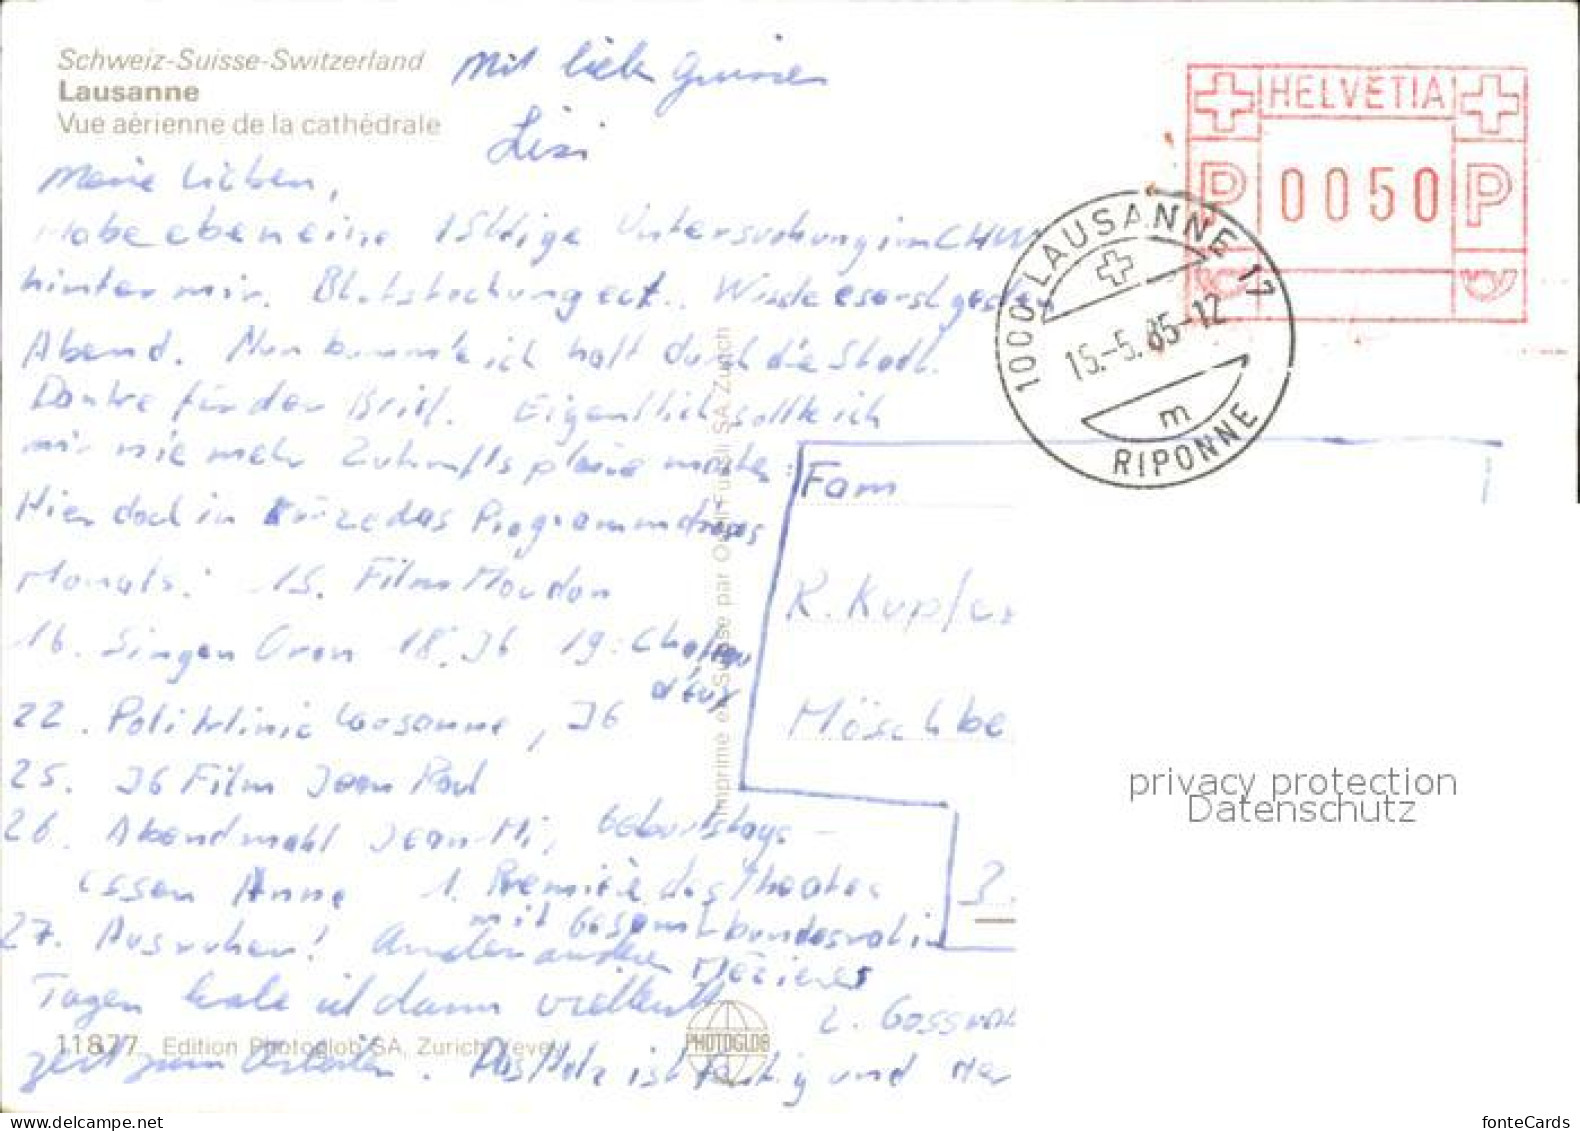 Schweiz-Suisse-Switzerland
Lausanne
Vue aérienne de la cathédrale
Mit lieben Grüssen
Lisi
HELVETIA
P 0050 P
1000 LAUSANNE 17
15.-5. 85-12
m
RIPONNE
Meine Lieben,
Habe eben eine 1 Stdige Untersuchung im CHUV
hinter mir. Blutstockung ect.. Wusste es erst gestern
Abend. Nun bummle ich halt durch die Stadt.
Danke für den Brief. Eigentlich sollte ich
mir nie mehr Zukunftspläne machen:
Hier doch in Kürze das Programm dieses
Monats: 15. Film Moudon
16. Singen Oron 18. JG 19.
d'eux
22. Poliklinic Lausanne, JG
25. JG Film Jean Paul
26. Abendmahl Jean-Mi, Geburtstags-
essen Anne 1. Première des Theater
mit Gesamtbundesrat in
27. Ausruhen! An den anderen Mézières
Tagen habe ich dann vielleicht
2.
zeit zum Arbeiten. Das Holz ist fertig und der
11877 Edition Photoglob SA, Zurich/Vevey
PHOTOGLOB
Imprimé en Suisse par Orell Füssli SA Zurich
Fam
R. Kupfer
Möschbe
3.
privacy protection
Datenschutz
fonteCards